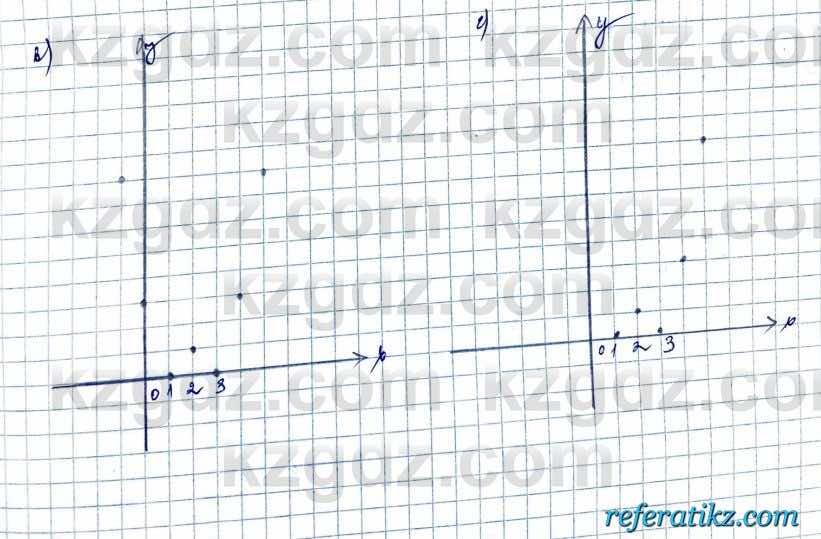 в) y
г) y
kzgdz.com kzgdz.com
kzgdz.com
kzgdz.com kzgdz.com
kzgdz.com
0 1 2 3
0 1 2 3
kzgdz.com kzgdz.com
kzgdz.com
referatikz.com